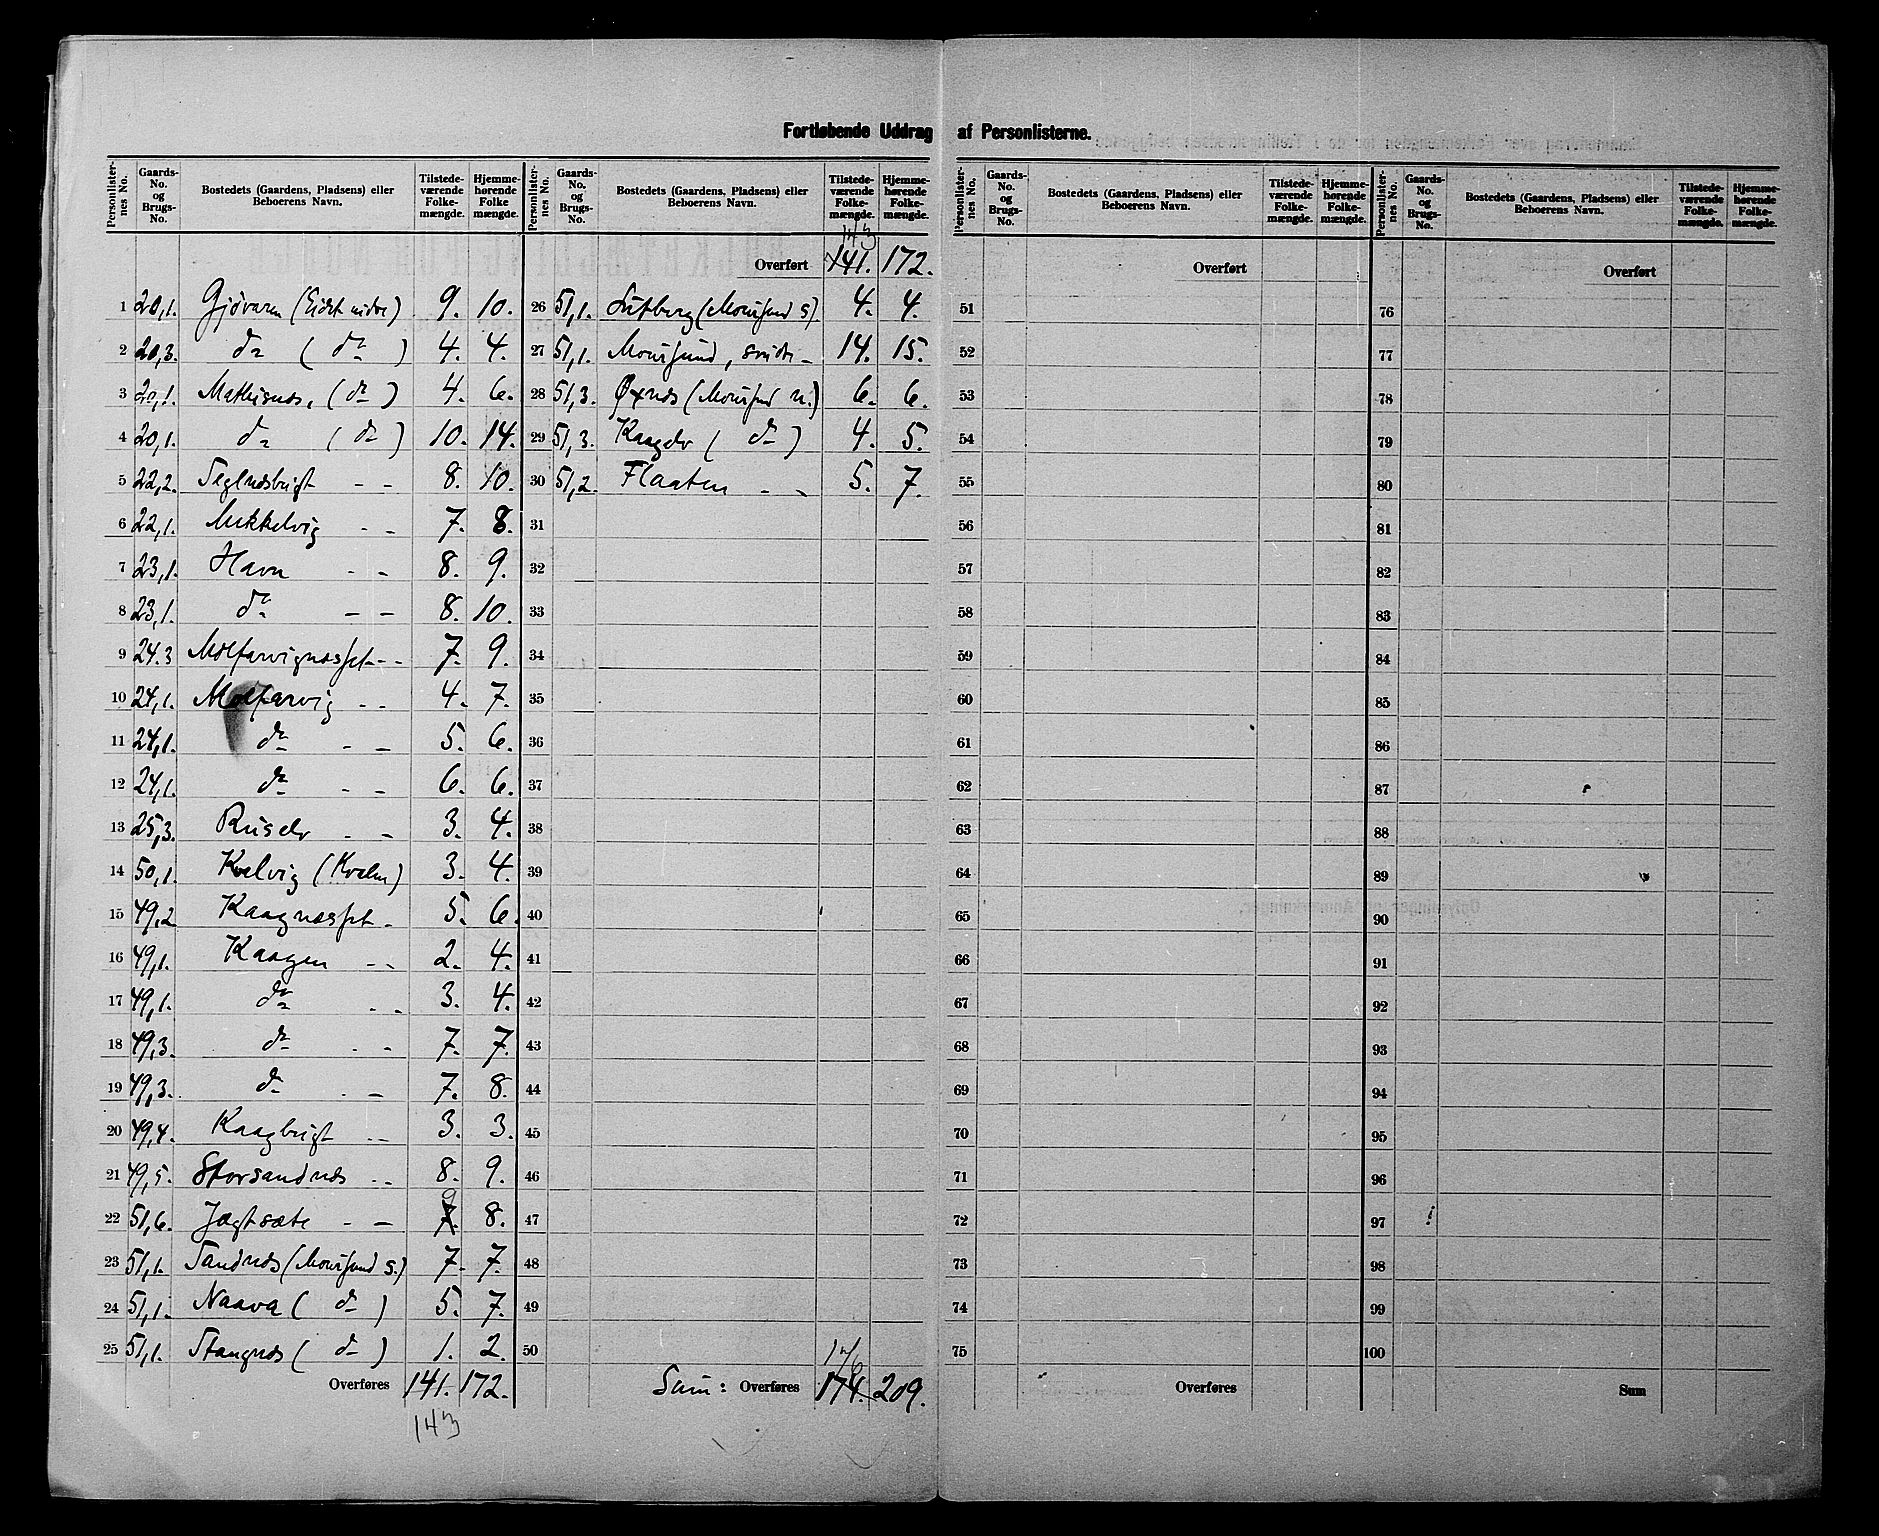 Fortløbende Uddrag af Personlisterne.
Personlister-nes No. Gaards-No. og Brugs-No. Bostedets (Gaardens, Pladsens) eller Beboerens Navn. Tilstede-værende Folke-mængde. Hjemme-hørende Folke mængde.
1 20,1. Gjøvaren (Eidet nidre) 9. 10.
2 20,3. do (do) 4. 4.
3 20,1. Mathisnæs, (do) 4. 6.
4 20,1. do (do) 10. 14.
5 22,2. 8. 10.
6 22,1. Mikkelvig - - 7. 8.
7 23,1. Havn - - 8. 9.
8 23,1. do - - 8. 10.
9 24.3 Molfarvignæsset - - 7. 9.
10 24,1. Molfarvig - - 4. 7.
11 24,1. do - - 5. 6.
12 24,1. do - - 6. 6.
13 25,3. Ruselv - - 3. 4.
14 50,1. Kvalvig 3. 4.
15 49,2 Kaagnæsset - 5. 6.
16 49,1. Kaagen - - 2. 4.
17 49,1. do - - 3. 4.
18 49,3. do - - 7. 7.
19 49,3. do - - 7. 8.
20 49,4. Kaagbugt - - 3. 3.
21 49,5. Storsandnæs - - 8. 9.
22 51,6. Jægtsæte - - 7. 9 8.
23 51,1. Sandnæs (Maursund s.) 7. 7.
24 51,1. Naava (do) 5. 7.
25 51,1. Stangnæs (do) 1. 2.
Overføres 141. 172.
143
Personlister-nes No. Gaards-No. og Brugs-No. Bostedets (Gaardens, Pladsens) eller Beboerens Navn. Tilstede-værende Folke-mængde. Hjemme-hørende Folke-mængde.
143
Overført 141. 172.
26 51,1. (Maursund s) 4. 4.
27 51,1. Maursund, søndre - 14. 15.
28 51,3. Øxnæs (Maursund n.) 6. 6.
29 51,3. Kaagelv (do) 4. 5.
30 51,2. Flaaten - - 5. 7.
31
32
33
34
35
36
37
38
39
40
41
42
43
44
45
46
47
48
49
50
176
Sum: Overføres 174. 209.
Personlister-nes No. Gaards-No. og Brugs-No. Bostedets (Gaardens, Pladsens) eller Beboerens Navn. Tilstede-værende Folke-mængde. Hjemme-hørende Folke-mængde.
Overført
51
52
53
54
55
56
57
58
59
60
61
62
63
64
65
66
67
68
69
70
71
72
73
74
75
Overføres
Personlister-nes No. Gaards-No. og Brugs-No. Bostedets (Gaardens, Pladsens) eller Beboerens Navn. Tilstede-værende Folke-mængde. Hjemme-hørende Folke-mængde.
Overført
76
77
78
79
80
81
82
83
84
85
86
87
88
89
90
91
92
93
94
95
96
97
98
99
100
Sum